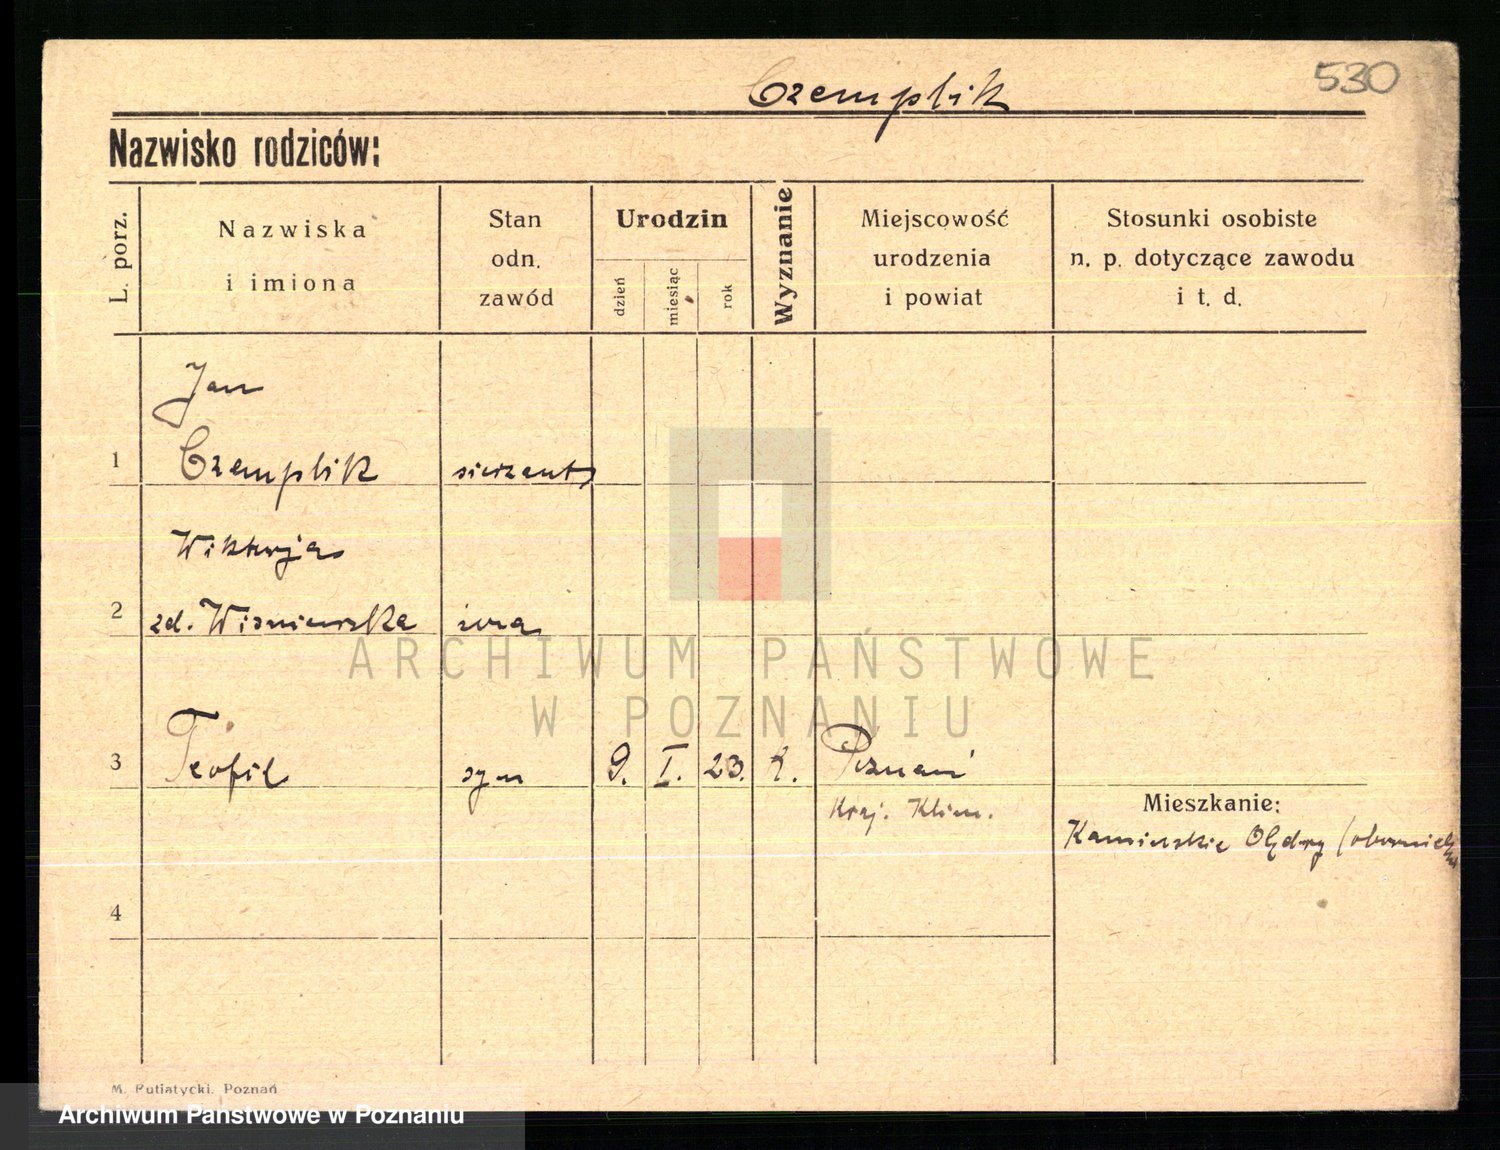 530
Czemplik
Nazwisko rodziców:
L. porz.
Nazwiska
i imiona
Stan
odn.
zawód
Urodzin
dzień
miesiąc
rok
Wyznanie
Miejscowość
urodzenia
i powiat
Stosunki osobiste
n. p. dotyczące zawodu
i t. d.
Jan
1 Czemplik sierżant
Wiktorja
2 zd. Wiśniewska żona
ARCHIWUM PAŃSTWOWE
W POZNANIU
3 Teofil syn 9. I. 23. K. Poznań
Kraj. Klin.
Mieszkanie:
Kamińskie Olędry
4
M. Putiatycki. Poznań
Archiwum Państwowe w Poznaniu